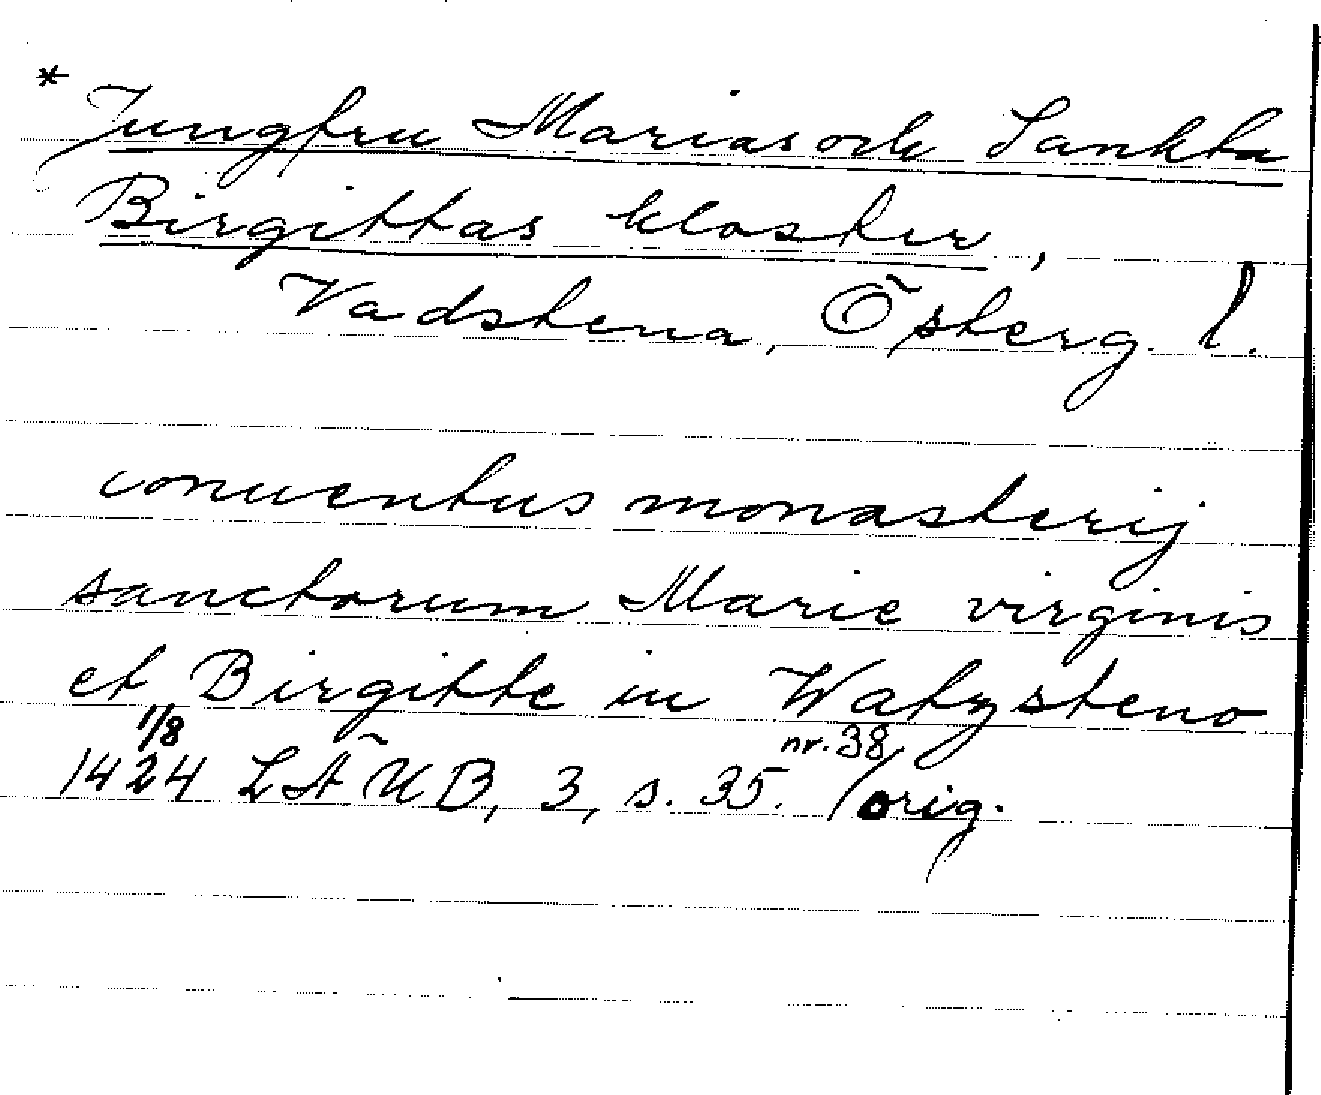 * Jungfru Marias och Sankta
Birgittas kloster,
Vadstena, Österg. l.
conuentus monasterij
sanctorum Marie virginis
et Birgitte in Watzsteno
1/8 nr. 38
1424 LÄUB, 3, s. 35. / orig.